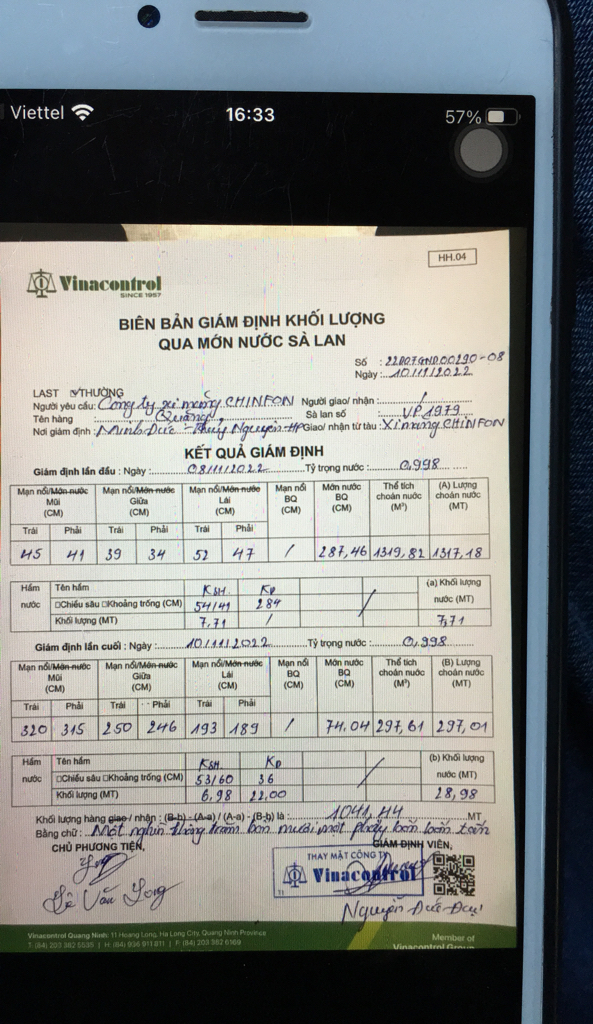 Viettel 16:33 57%
HH.04
Vinacontrol
SINCE 1957
BIÊN BẢN GIÁM ĐỊNH KHỐI LƯỢNG
QUA MÓN NƯỚC SÀ LAN
Số : 22D07GND00290-08
Ngày : 10/11/2022
LAST THƯỜNG
Người yêu cầu: Công ty xi măng CHINFON Người giao/ nhận : /
Tên hàng : Quặng Sà lan số : VP1979
Nơi giám định : Minh Đức - Thủy Nguyên - HP Giao/ nhận từ tàu : Xi măng CHINFON
KẾT QUẢ GIÁM ĐỊNH
Giám định lần đầu : Ngày : 08/11/2022 Tỷ trọng nước : 0,998
Mạn nổi/Món nước Mũi (CM) Mạn nổi/Món nước Giữa (CM) Mạn nổi/Món nước Lái (CM) Mạn nổi BQ (CM) Món nước BQ (CM) Thể tích choán nước (M³) (A) Lượng choán nước (MT)
Trái Phải Trái Phải Trái Phải
45 41 39 34 52 47 / 287,46 1319,82 1317,18
Hầm nước Tên hầm KSH. KP (a) Khối lượng nước (MT)
□Chiều sâu □Khoảng trống (CM) 54/41 284
Khối lượng (MT) 7,71 / 7,71
Giám định lần cuối : Ngày : 10/11/2022 Tỷ trọng nước : 0,998
Mạn nổi/Món nước Mũi (CM) Mạn nổi/Món nước Giữa (CM) Mạn nổi/Món nước Lái (CM) Mạn nổi BQ (CM) Món nước BQ (CM) Thể tích choán nước (M³) (B) Lượng choán nước (MT)
Trái Phải Trái Phải Trái Phải
320 315 250 246 193 189 / 74.04 297,61 297,01
Hầm nước Tên hầm KSH. KP (b) Khối lượng nước (MT)
□Chiều sâu □Khoảng trống (CM) 53/60 36
Khối lượng (MT) 6,98 22,00 28,98
Khối lượng hàng giao / nhận : (B-b) - (A-a) / (A-a) - (B-b) là : 1041,44 MT
Bằng chữ : Một nghìn không trăm bốn mươi một phẩy bốn bốn tấn
CHỦ PHƯƠNG TIỆN, GIÁM ĐỊNH VIÊN,
THAY MẶT CÔNG TY
Vinacontrol
Lê Văn Long
Nguyễn Đức Duy
Vinacontrol Quang Ninh: 11 Hoang Long, Ha Long City, Quang Ninh Province
T: (84) 203 382 5535 | H: (84) 936 911 811 | F: (84) 203 382 6169
Member of
Vinacontrol Group